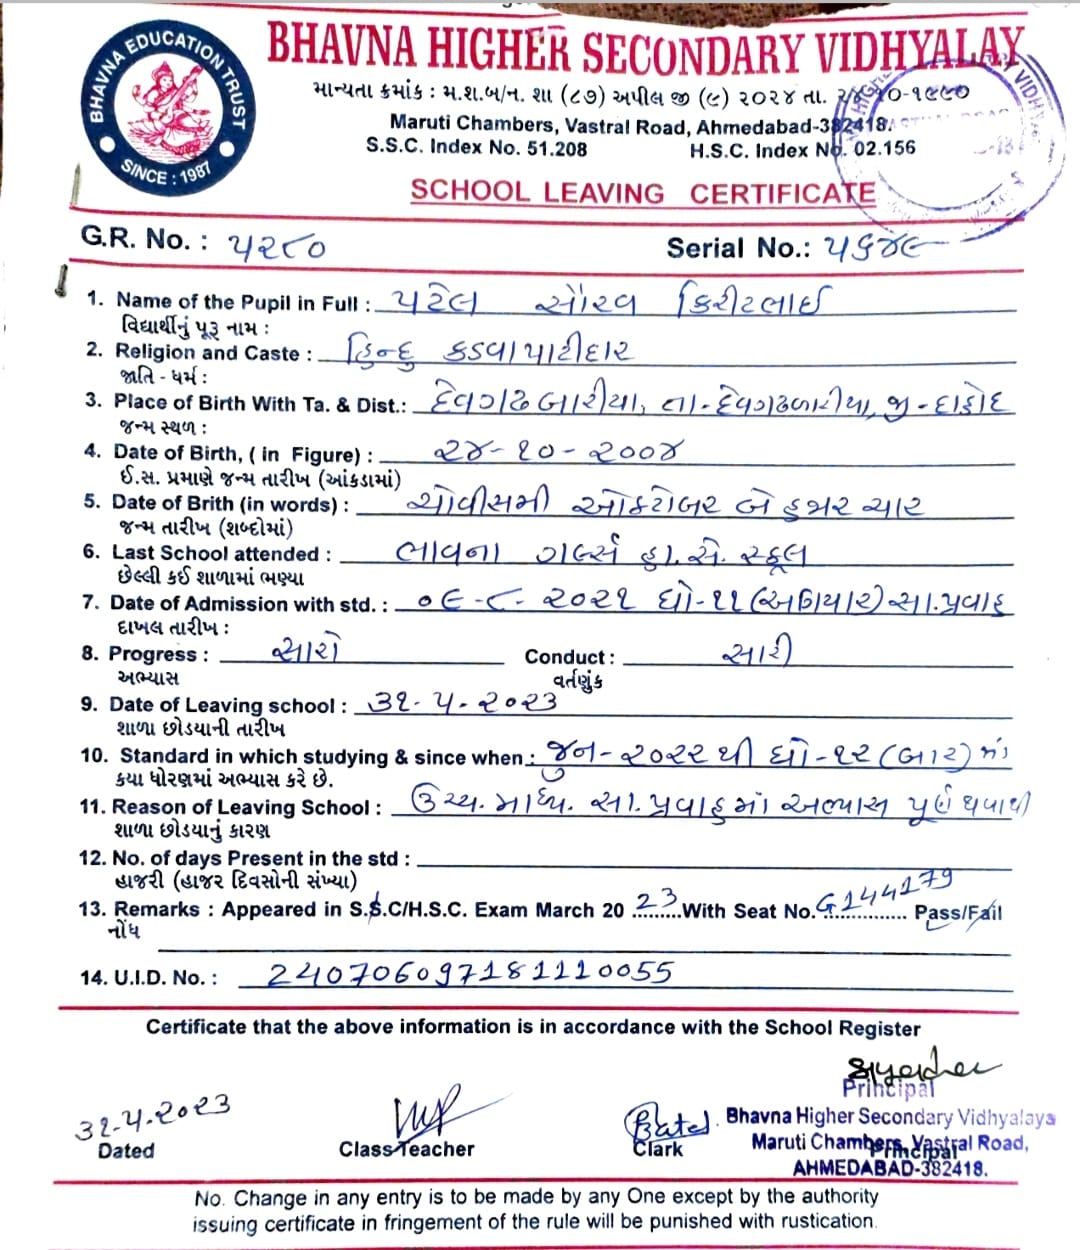 BHAVNA EDUCATION TRUST
SINCE : 1987
BHAVNA HIGHER SECONDARY VIDHYALAY
માન્યતા ક્રમાંક : મ.શ.બ/ન. શા (૮૭) અપીલ જી (૯) ૨૦૨૪ તા.
Maruti Chambers, Vastral Road, Ahmedabad-382418.
S.S.C. Index No. 51.208 H.S.C. Index No. 02.156
SCHOOL LEAVING CERTIFICATE
G.R. No. : ૫૨૮૦ Serial No.: ૫૬૪૯
1. Name of the Pupil in Full : પટેલ સૌરવ કિરીટભાઈ
વિદ્યાર્થીનું પૂરૂ નામ :
2. Religion and Caste : હિન્દુ કડવાપાટીદાર
જાતિ - ધર્મ :
3. Place of Birth With Ta. & Dist.: દેવગઢબારીયા, તા-દેવગઢબારીયા, જી-દાહોદ
જન્મ સ્થળ :
4. Date of Birth, ( in Figure) : ૨૪-૧૦-૨૦૦૪
ઈ.સ. પ્રમાણે જન્મ તારીખ (આંકડામાં)
5. Date of Brith (in words) : ચોવીસમી ઓક્ટોબર બે હજાર ચાર
જન્મ તારીખ (શબ્દોમાં)
6. Last School attended : ભાવના ગર્લ્સ હા.સે. સ્કૂલ
છેલ્લી કઈ શાળામાં ભણ્યા
7. Date of Admission with std. : ૦૯-૮-૨૦૨૧ ધો-૧૧(અગિયાર)સા.પ્રવાહ
દાખલ તારીખ :
8. Progress : સારો Conduct : સારી
અભ્યાસ વર્તણુંક
9. Date of Leaving school : ૩૧-૫-૨૦૨૩
શાળા છોડયાની તારીખ
10. Standard in which studying & since when : જુન-૨૦૨૨ થી ધો-૧૨ (બાર) માં
કયા ધોરણમાં અભ્યાસ કરે છે.
11. Reason of Leaving School : ઉચ્ચ. માધ્ય. સા. પ્રવાહમાં અભ્યાસ પૂર્ણ થવાથી
શાળા છોડયાનું કારણ
12. No. of days Present in the std :
હાજરી (હાજર દિવસોની સંખ્યા)
13. Remarks : Appeared in S.S.C/H.S.C. Exam March 20 23 With Seat No. G144179 Pass/Fail
નોંધ
14. U.I.D. No. : 240706097181110055
Certificate that the above information is in accordance with the School Register
૩૧-૫-૨૦૨૩
Dated Class Teacher Clark
Principal
Bhavna Higher Secondary Vidhyalaya
Maruti Chambers, Vastral Road,
Principal
AHMEDABAD-382418.
No. Change in any entry is to be made by any One except by the authority
issuing certificate in fringement of the rule will be punished with rustication.